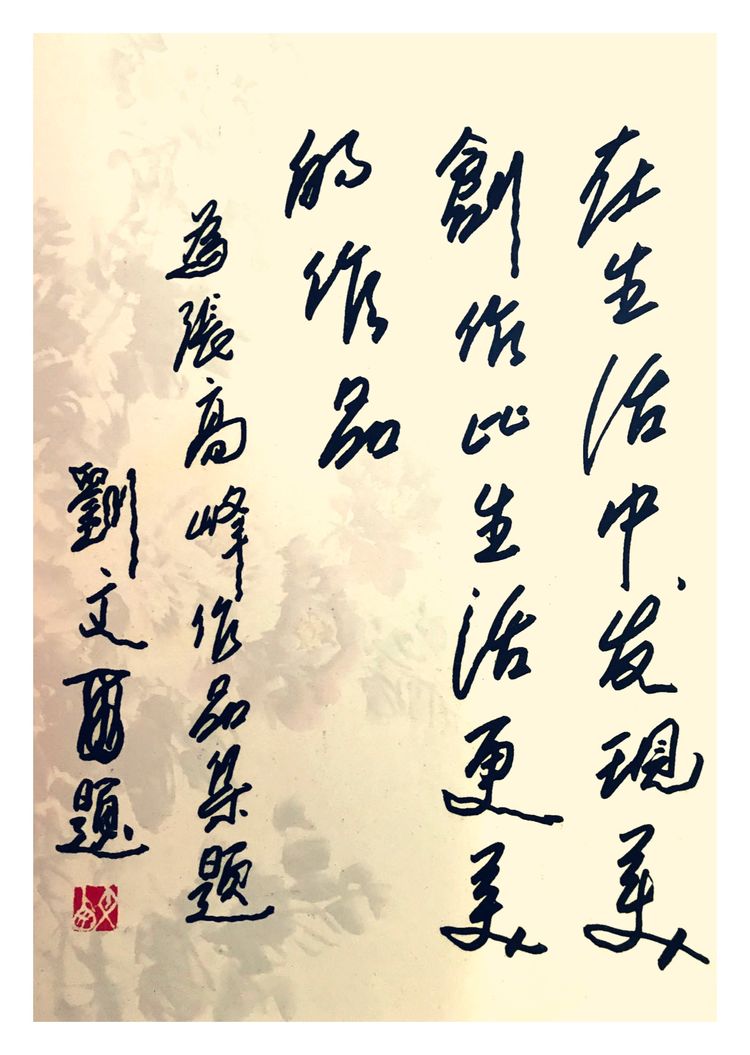 在生活中发现美
創作比生活更美
的作品
為張高峰作品集題
劉文西題